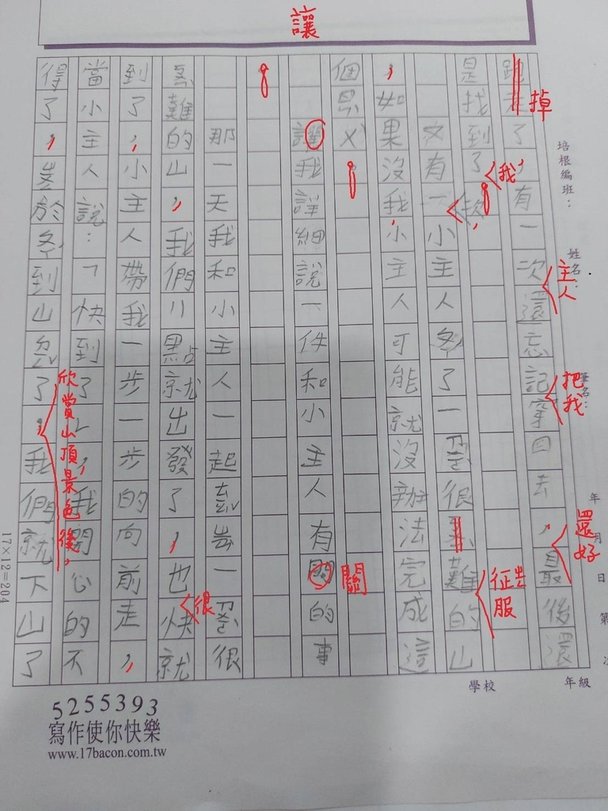 讓
了,有一次還忘記穿回去,最後還
掉
主人
把我
還好
是找到了
我,
有一小主人了一很難的山
征服出
,如果沒我,小主人可能就沒辦法完成這
個
讓我詳細說一件和小主人有關的事
關
那一天我和小主人一起去一很
難的山,我們八點就出發了,也快就
很
到了,小主人帶我一步一步的向前走,
當小主人說:「快到了」,我開心的不
得了,於到山了,我們就下山了
欣賞山頂景色後,
培根編班:
姓名:
年
月
日
第
次
學校
年級
17×12=204
5255393
寫作使你快樂
www.17bacon.com.tw